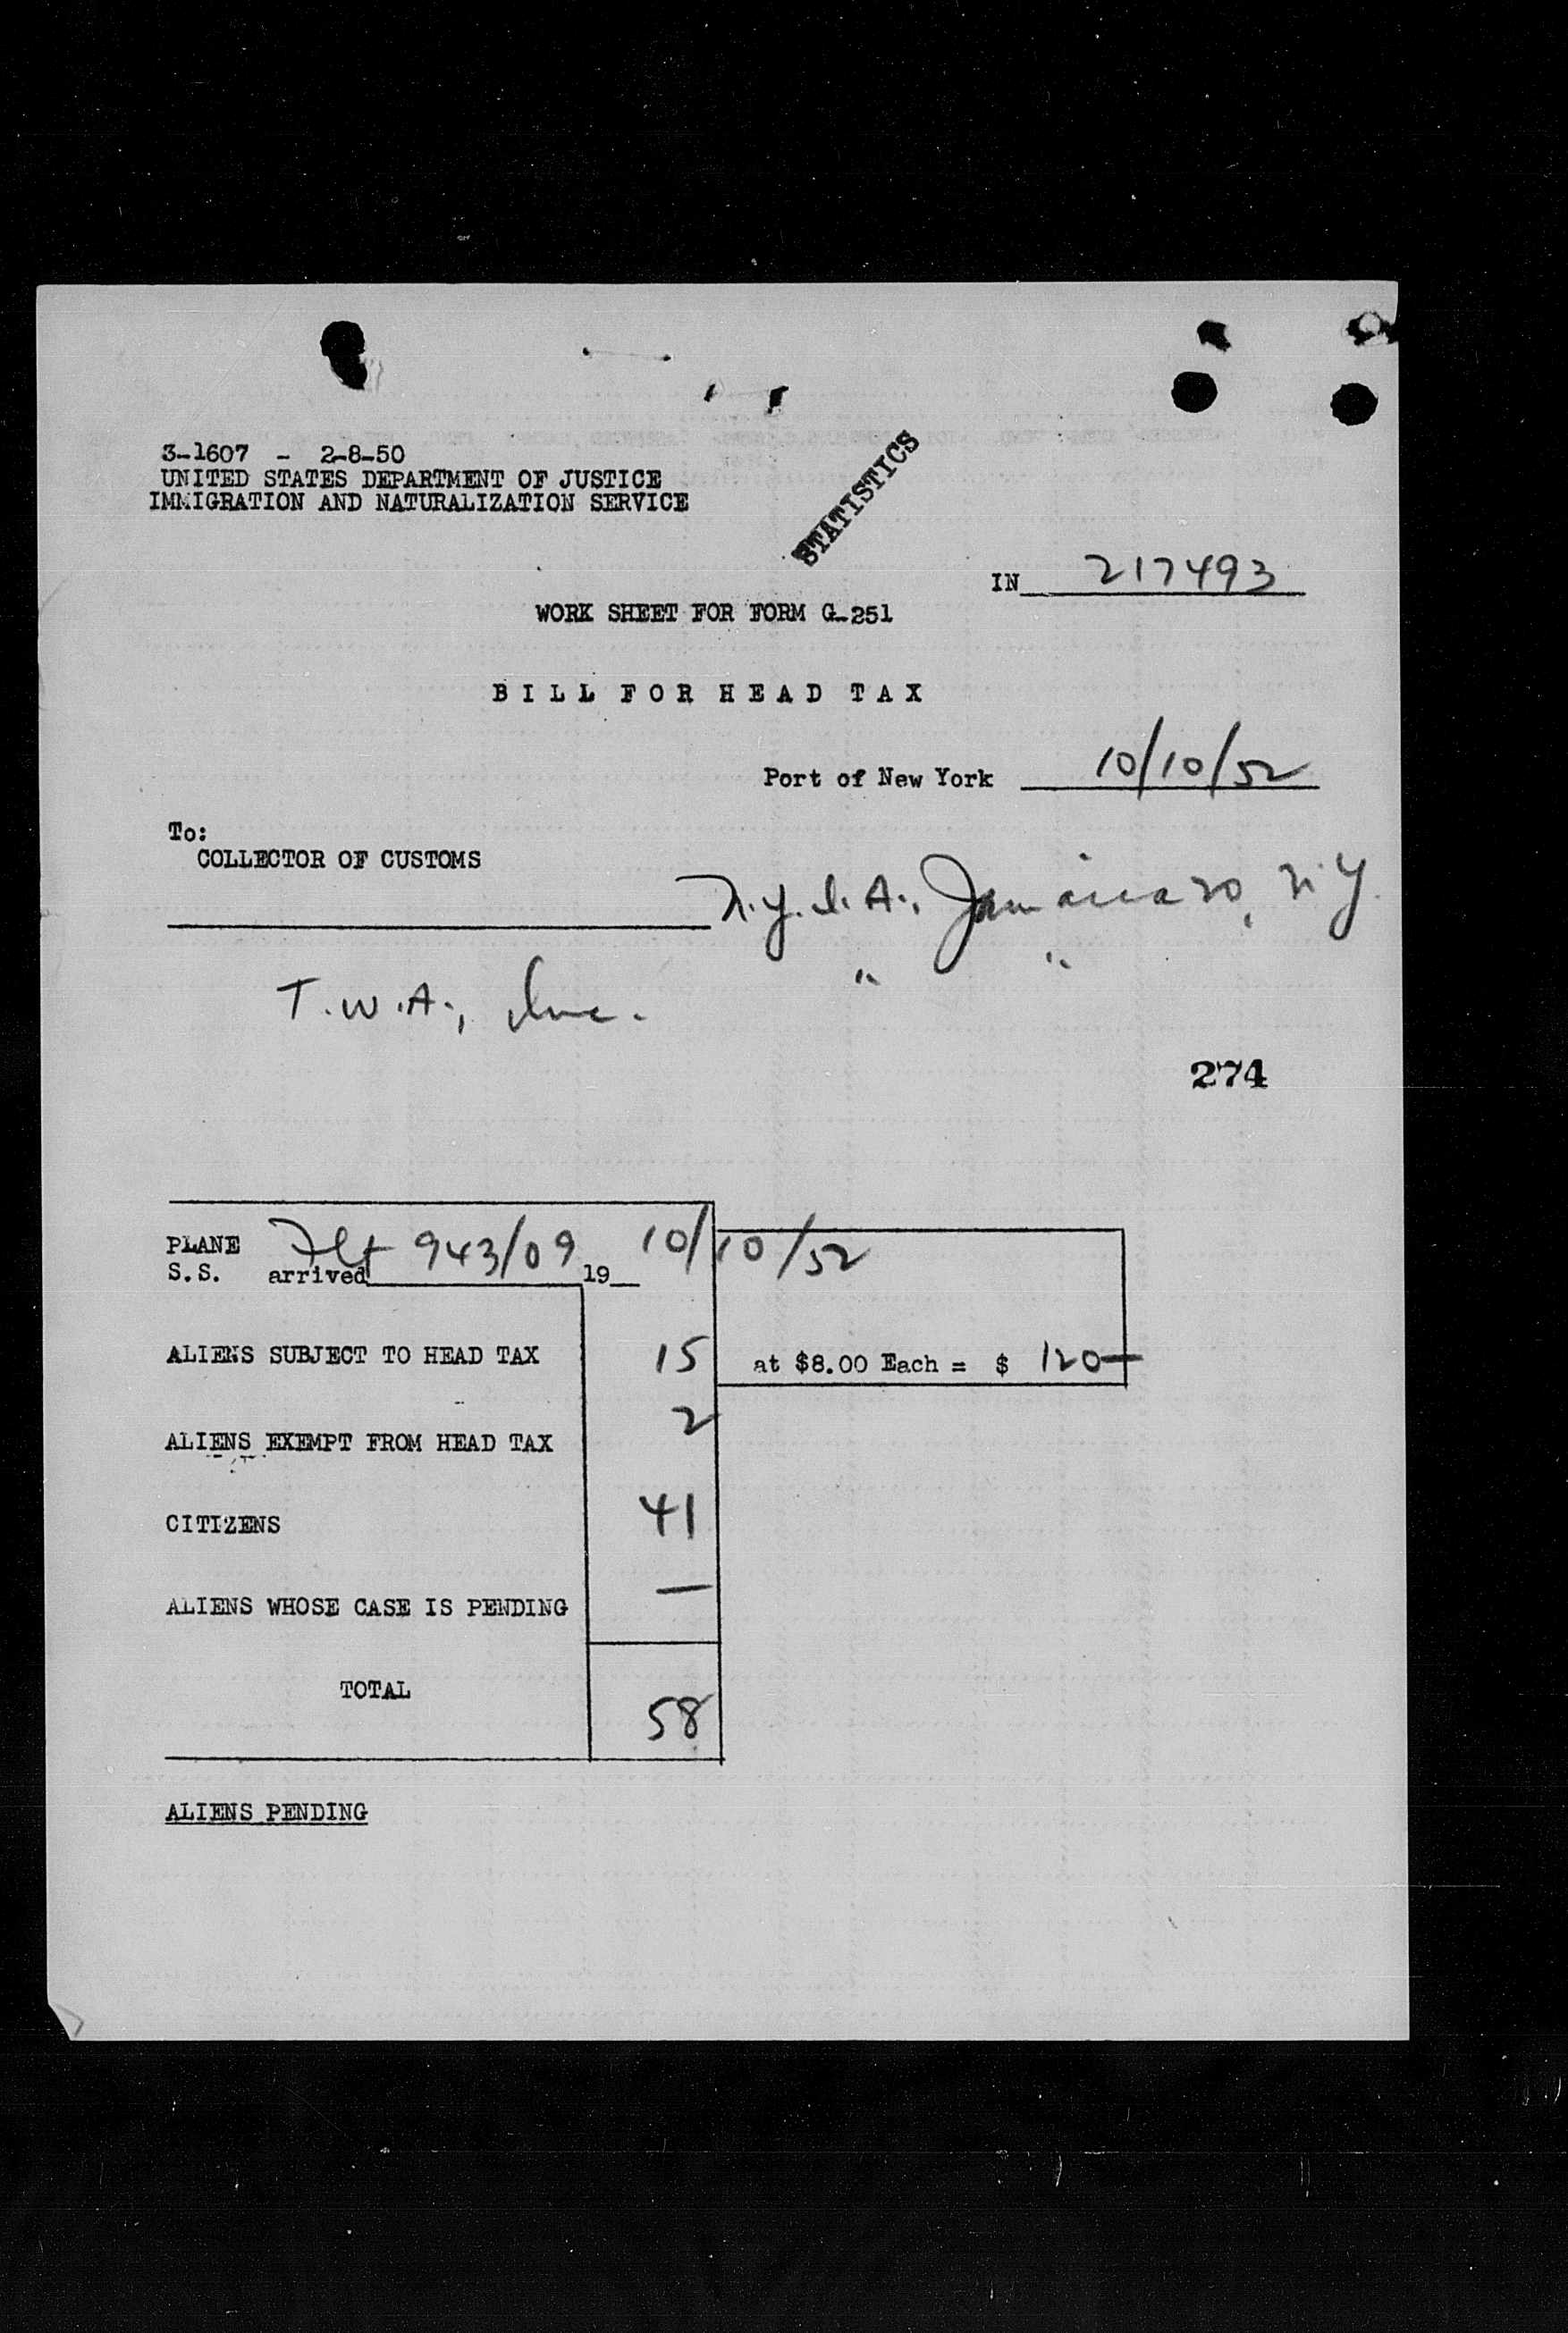 3-1607 - 2-8-50
UNITED STATES DEPARTMENT OF JUSTICE
IMMIGRATION AND NATURALIZATION SERVICE
STATISTICS
IN 217493
WORK SHEET FOR FORM G-251
BILL FOR HEAD TAX
Port of New York 10/10/52
To:
COLLECTOR OF CUSTOMS
N.Y.I.A., Jamaica 30, N.Y.
" "
T.W.A., Inc.
274
PLANE Flt 943/09 10/10/52
S.S. arrived 19
ALIENS SUBJECT TO HEAD TAX 15 at $8.00 Each = $ 120—
ALIENS EXEMPT FROM HEAD TAX 2
CITIZENS 41
ALIENS WHOSE CASE IS PENDING —
TOTAL 58
ALIENS PENDING